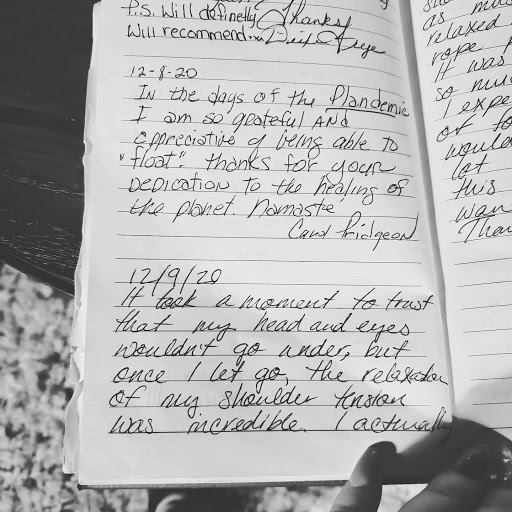 P.S. Will definelly Thanks!
Will recommend
12-8-20
IN the days of the Plandemic
I am so grateful AND
appreciative of being able to
"float". Thanks for your
DEDICATION to the healing of
the planet. Namaste'
Pridgeon
12/9/20
It took a moment to trust
that my head and eyes
wouldn't go under, but
once I let go, the relaxation
of my shoulder tension
was incredible. I actually
as
relaxed
rope
It was
so
I expe
of
would
let
this
wan
Than